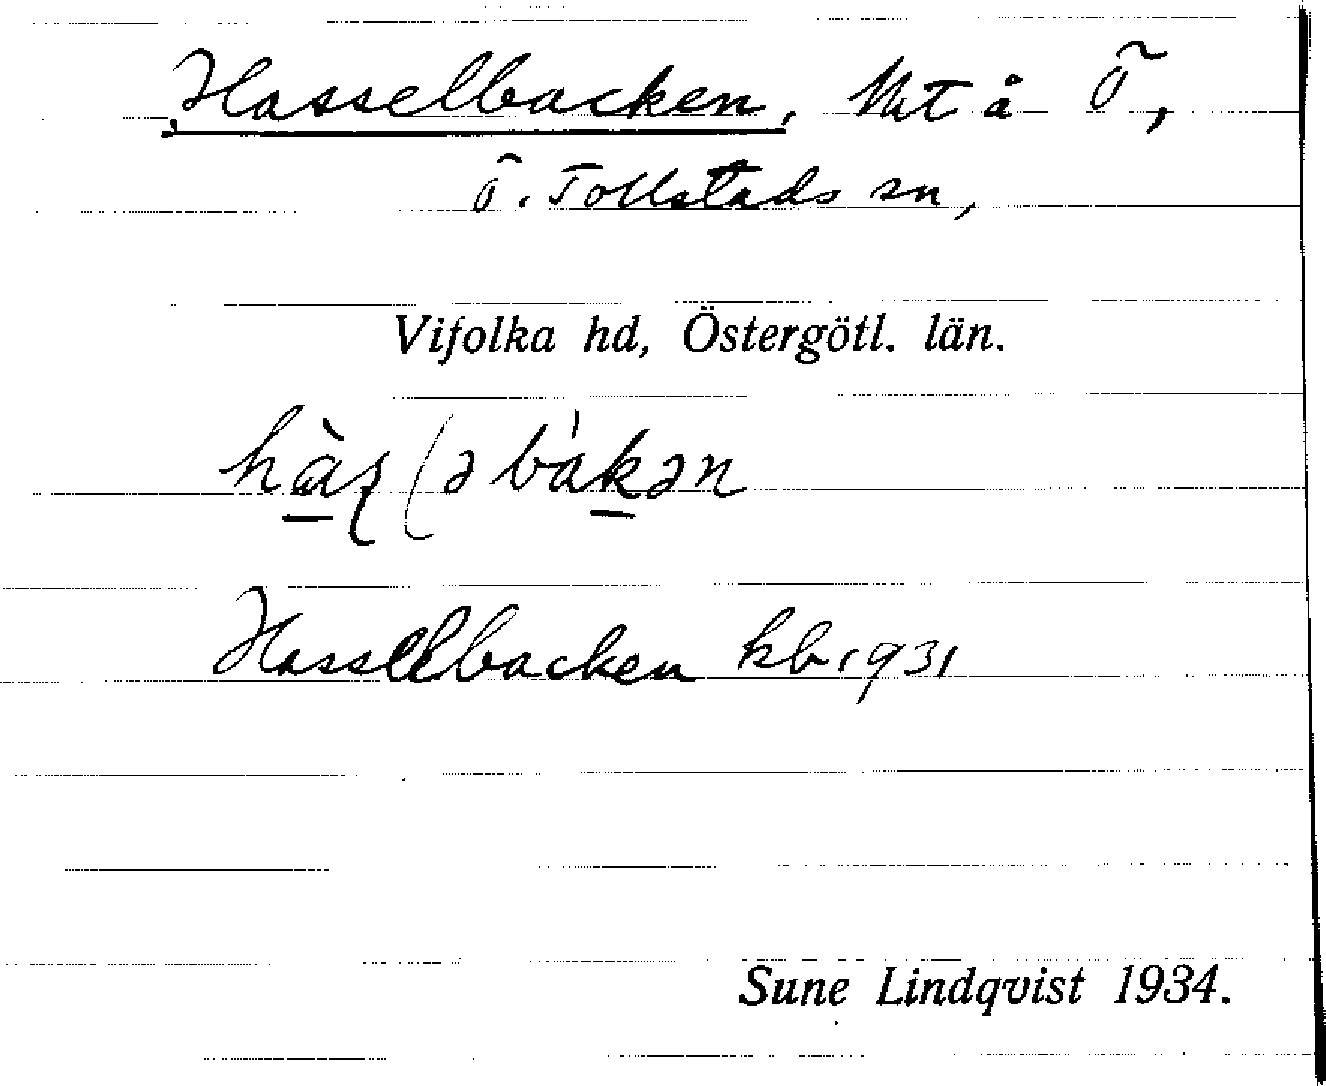 Hasselbacken, Utt å Ö,
Ö. Tollstads sn,
Vifolka hd, Östergötl. län.
Hasselbacken kb 1931
Sune Lindqvist 1934.